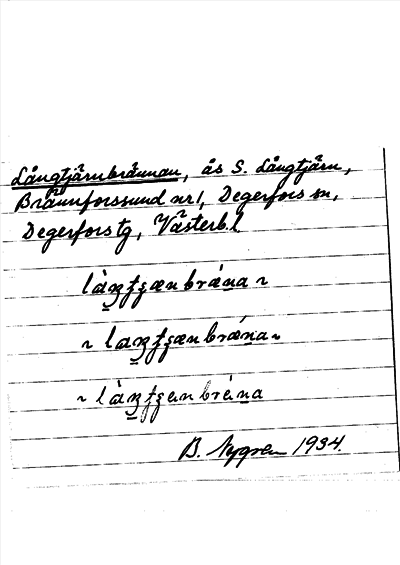 Långtjärnbrännan, ås S. Långtjärn,
Brännforssund nr 1, Degerfors sn,
Degerfors tg, Västerb. l
làŋţʂæn brǽna ~
~ laŋţʂæn brǽna ~
~ làŋţʂen bréna
B. Nygren 1934.